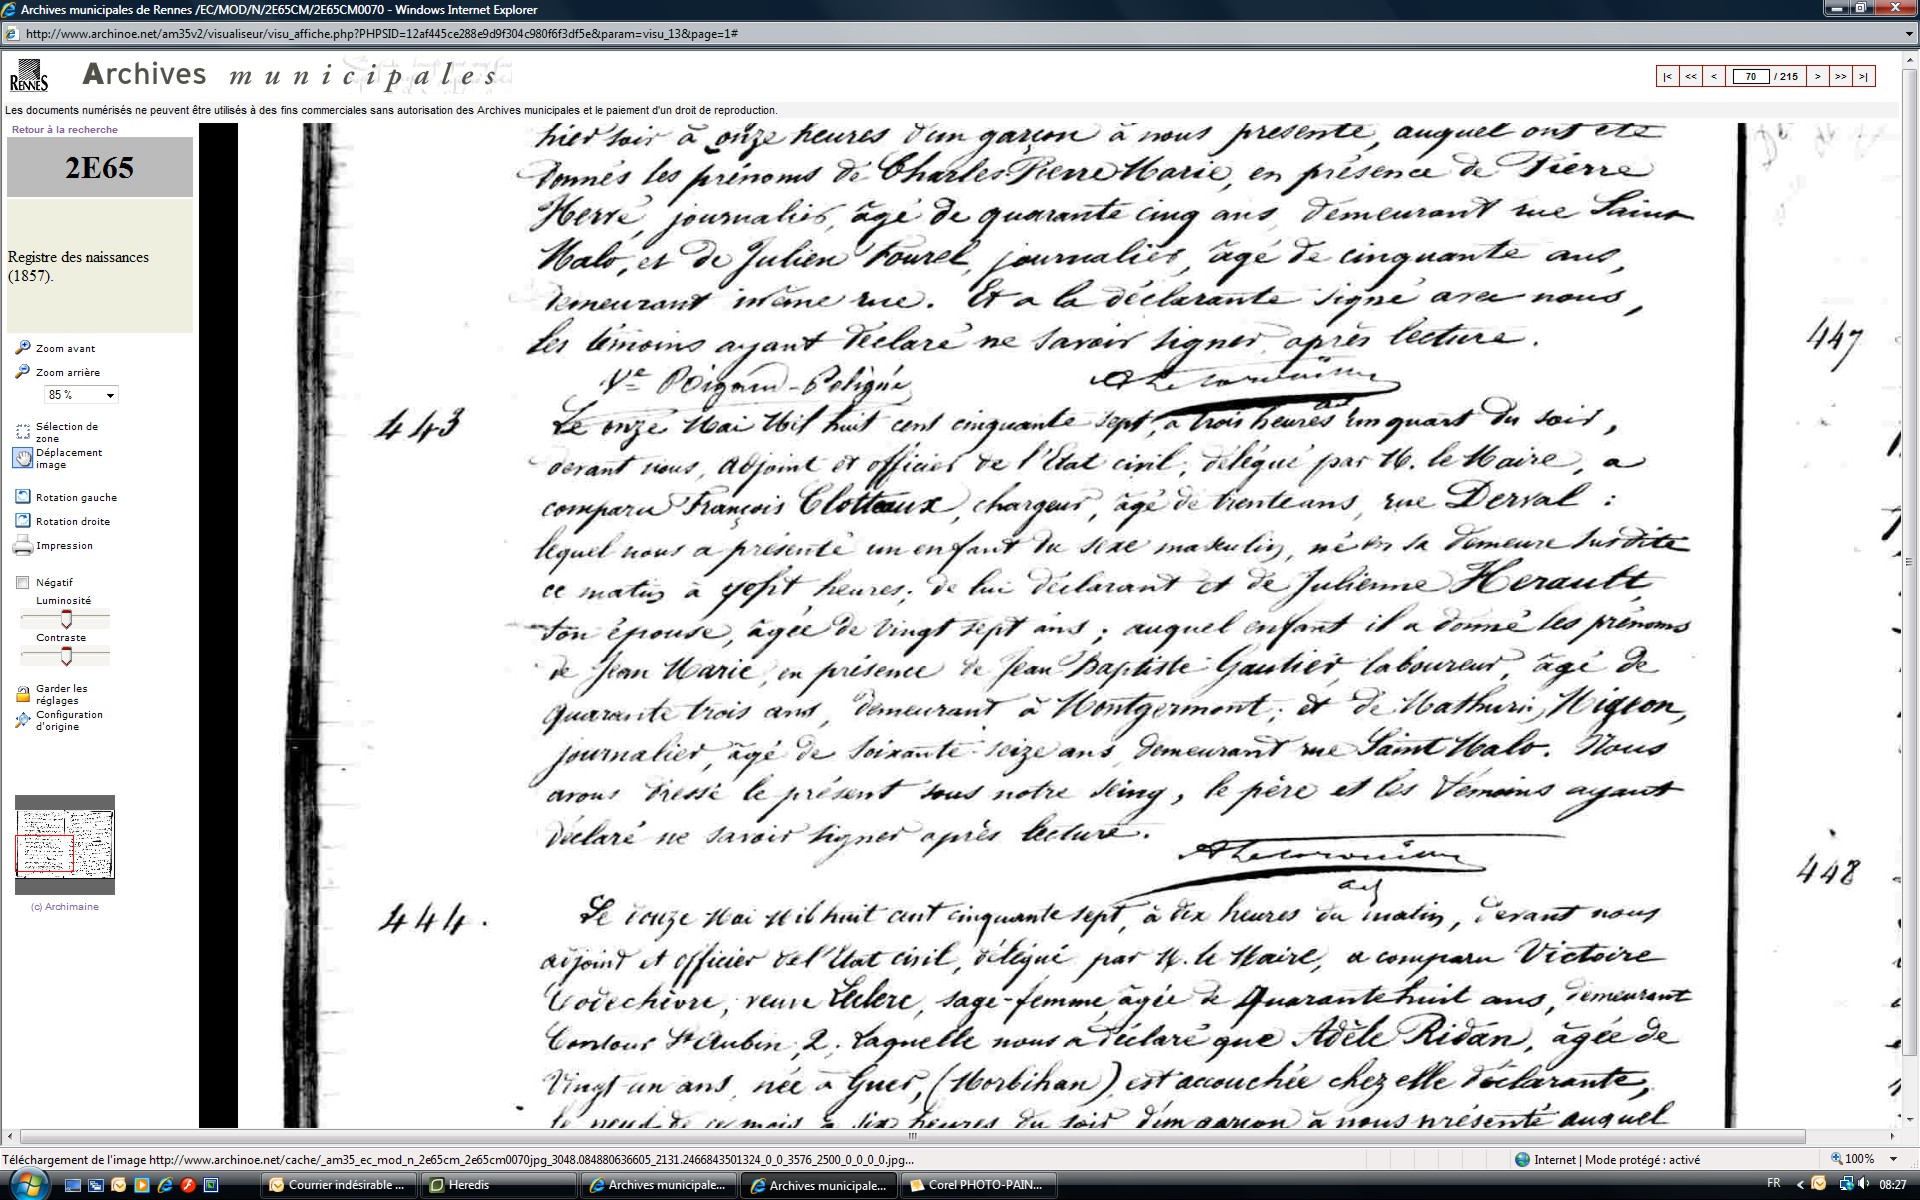 Archives municipales de Rennes /EC/MOD/N/2E65CM/2E65CM0070 - Windows Internet Explorer
http://www.archinoe.net/am35v2/visualiseur/visu_affiche.php?PHPSID=12af445ce288e9d9f304c980f6f3df5e&param=visu_13&page=1#
RENNES
Archives municipales
|< << < 70 / 215 > >> >|
Les documents numérisés ne peuvent être utilisés à des fins commerciales sans autorisation des Archives municipales et le paiement d'un droit de reproduction.
Retour à la recherche
2E65
Registre des naissances
(1857).
Zoom avant
Zoom arrière
85 %
Sélection de
zone
Déplacement
image
Rotation gauche
Rotation droite
Impression
Négatif
Luminosité
Contraste
Garder les
réglages
Configuration
d'origine
(c) Archimaine
hier soir à onze heures d'un garçon à nous présenté, auquel ont été
donnés les prénoms de Charles Pierre Marie, en présence de Pierre
Hervé, journalier, âgé de quarante cinq ans, demeurant rue Saint
Malo, et de Julien Fourel, journalier, âgé de cinquante ans,
demeurant même rue. Et a la déclarante signé avec nous,
les témoins ayant déclaré ne savoir signer après lecture.
Ve
443
Le onze Mai Mil huit cent cinquante sept, à trois heures un quart du soir,
devant nous, adjoint et officier de l'Etat civil, délégué par M. le Maire, a
comparu François Clotteaux, chargeur, âgé de trente ans, rue Derval :
lequel nous a présenté un enfant du sexe masculin, né en sa demeure susdite
ce matin à sept heures, de lui déclarant et de Julienne Herault,
son épouse, âgée de vingt sept ans ; auquel enfant il a donné les prénoms
de Jean Marie, en présence de Jean Baptiste Gautier, laboureur, âgé de
quarante trois ans, demeurant à Montgermont ; et de Mathurin Migeon,
journalier, âgé de soixante-seize ans, demeurant rue Saint Malo. Nous
avons dressé le présent sous notre seing, le père et les témoins ayant
déclaré ne savoir signer après lecture.
adj
444.
Le douze Mai Mil huit cent cinquante sept, à dix heures du matin, devant nous
adjoint et officier de l'Etat civil, délégué par M. le Maire, a comparu Victoire
veuve Leclerc, sage-femme, âgée de quarante huit ans, demeurant
Contour St Aubin, 2. Laquelle nous a déclaré que Adèle Ridan, âgée de
vingt un ans, née à Guer, (Morbihan) est accouchée chez elle déclarante,
le neuf de ce mois à six heures du soir d'un garçon à nous présenté auquel
447
448
Téléchargement de l'image http://www.archinoe.net/cache/_am35_ec_mod_n_2e65cm_2e65cm0070jpg_3048.084880636605_2131.2466843501324_0_0_3576_2500_0_0_0_0.jpg...
Internet | Mode protégé : activé
100%
Courrier indésirable ...
Heredis
Archives municipale...
Archives municipale...
Corel PHOTO-PAIN...
FR
08:27